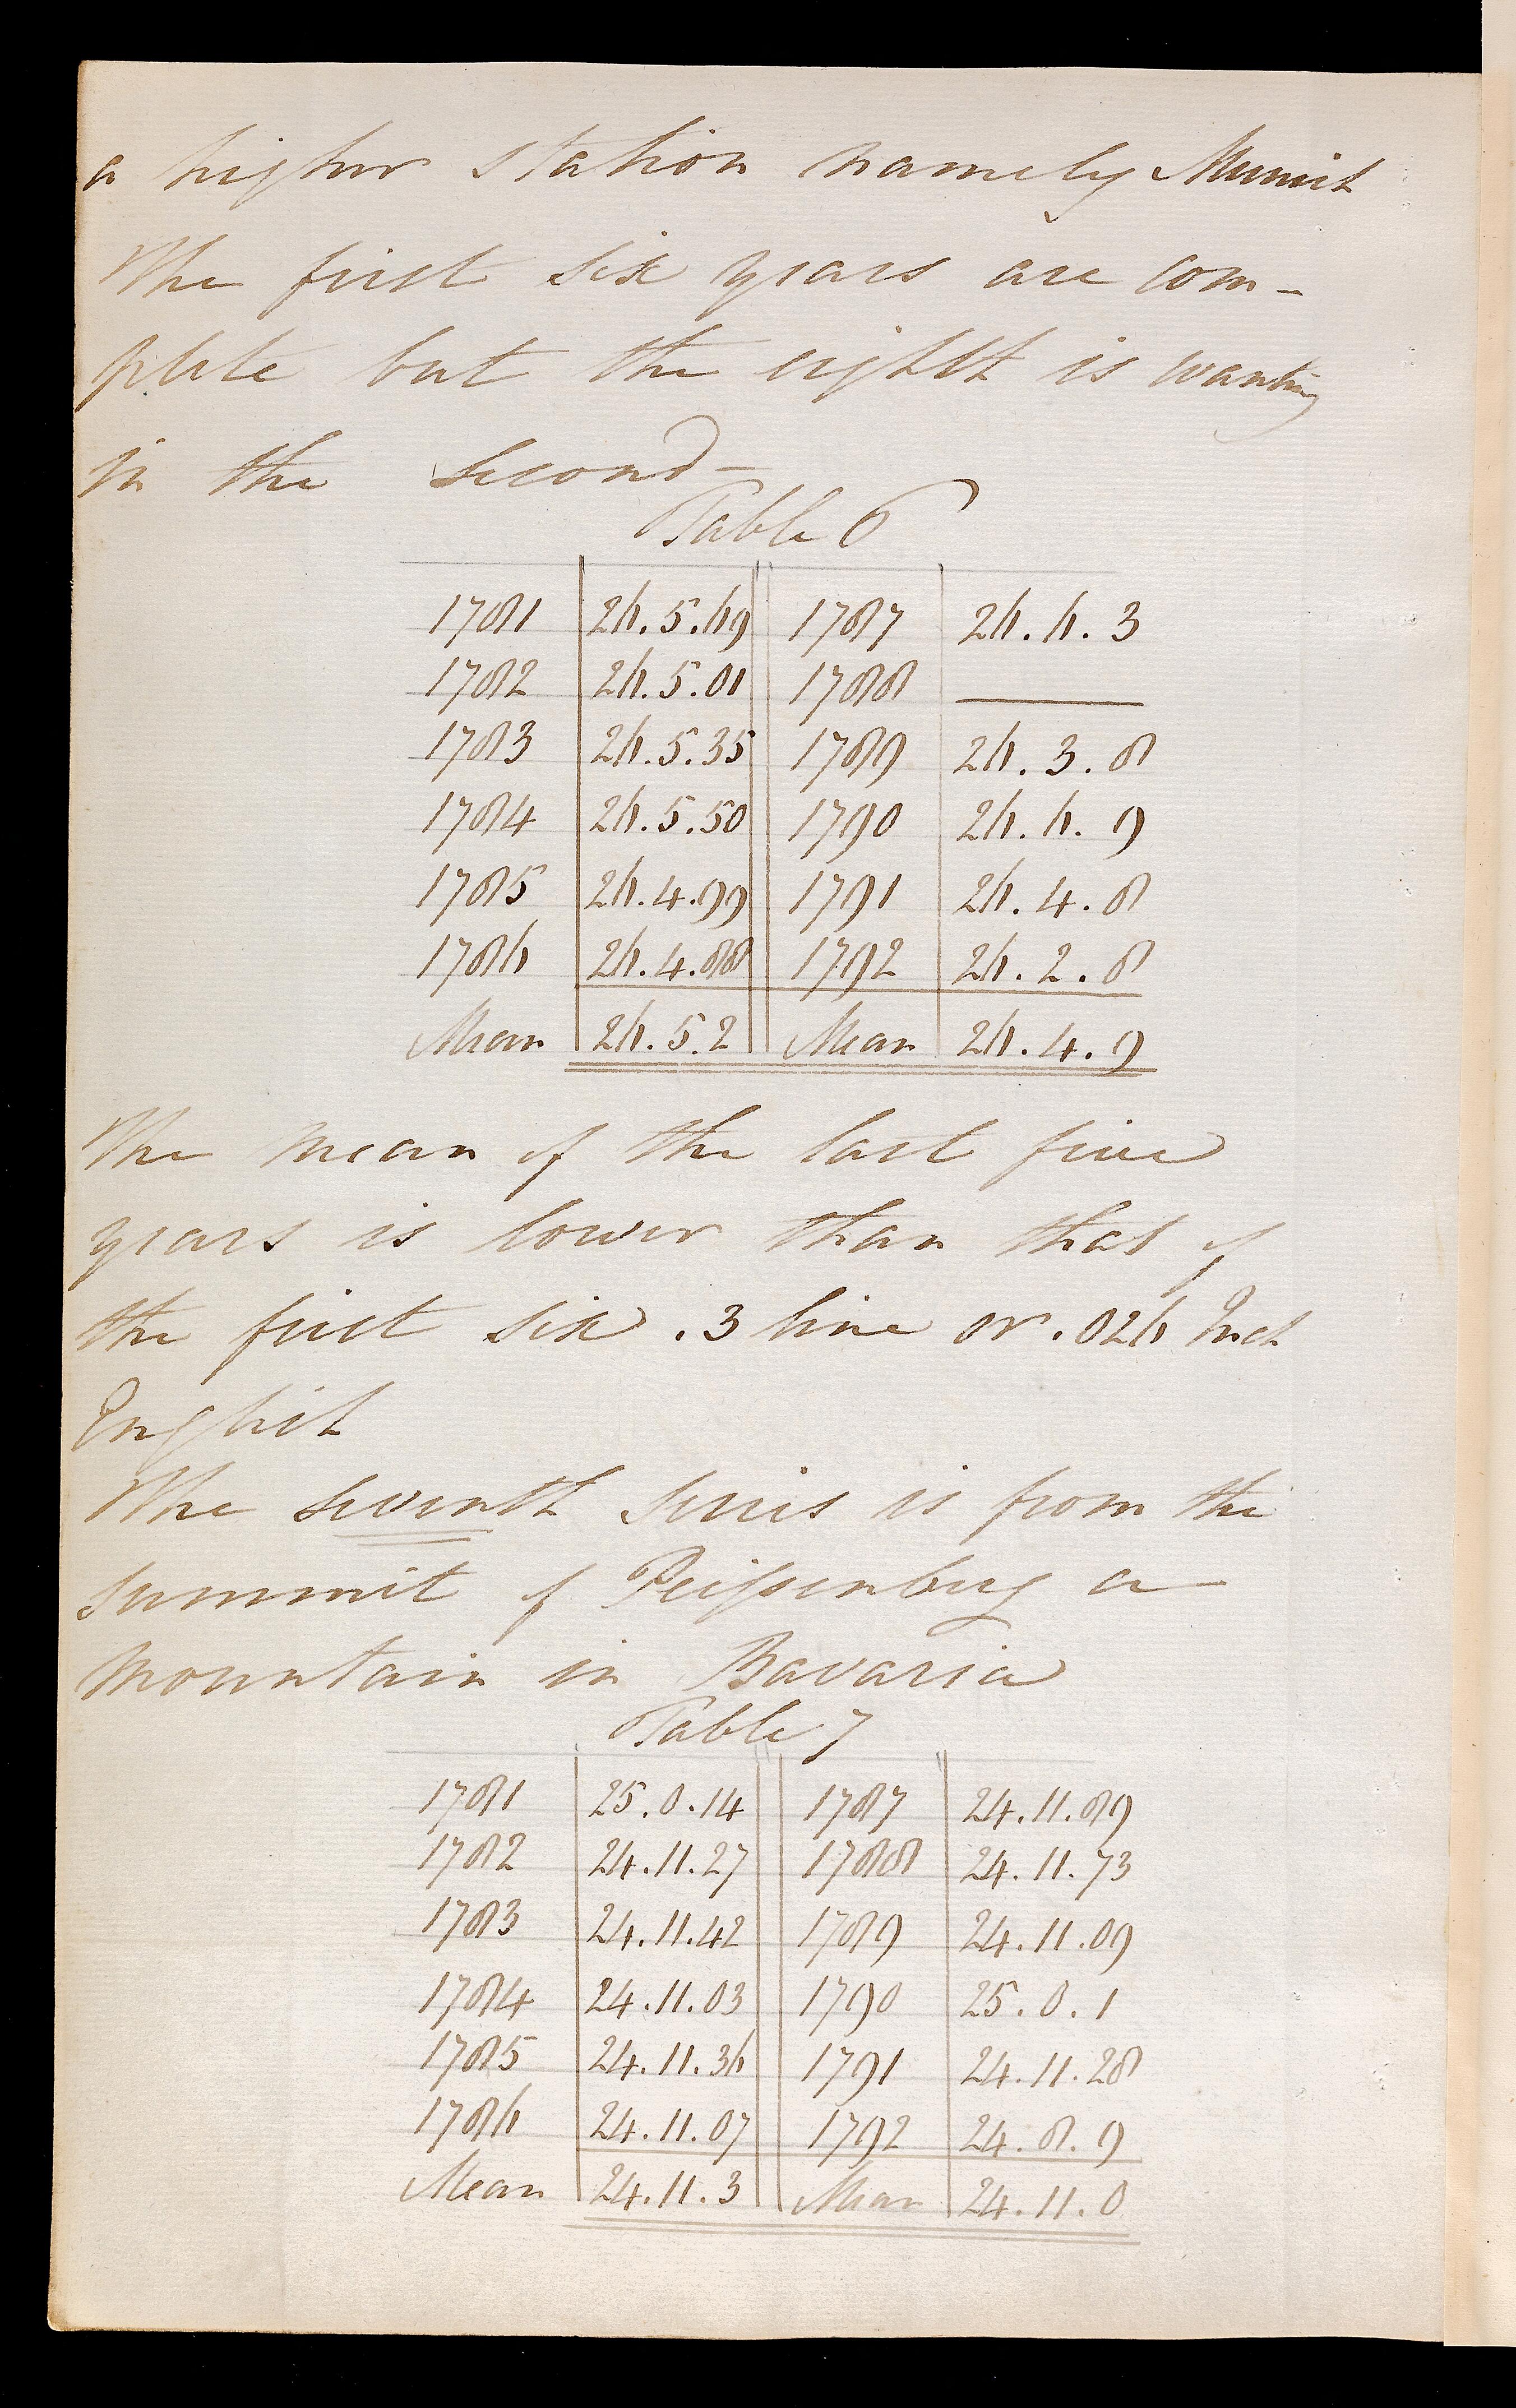 a higher station namely Munich
The first six years are com-
plete but the eighth is wanting
in the second-
Table 6
1781 26.5.69 1787 26.6.3
1782 26.5.01 1788 ——
1783 26.5.35 1789 26.3.8
1784 26.5.50 1790 26.6.9
1785 26.4.99 1791 26.4.8
1786 26.4.88 1792 26.2.8
Mean 26.5.2 Mean 26.4.9
The mean of the last five
years is lower than that of
the first six .3 line or .026 Inch
English
The seventh series is from the
summit of Peissenberg a
mountain in Bavaria
Table 7
1781 25.0.14 1787 24.11.89
1782 24.11.27 1788 24.11.73
1783 24.11.42 1789 24.11.09
1784 24.11.03 1790 25.0.1
1785 24.11.36 1791 24.11.28
1786 24.11.07 1792 24.8.9
Mean 24.11.3 Mean 24.11.0